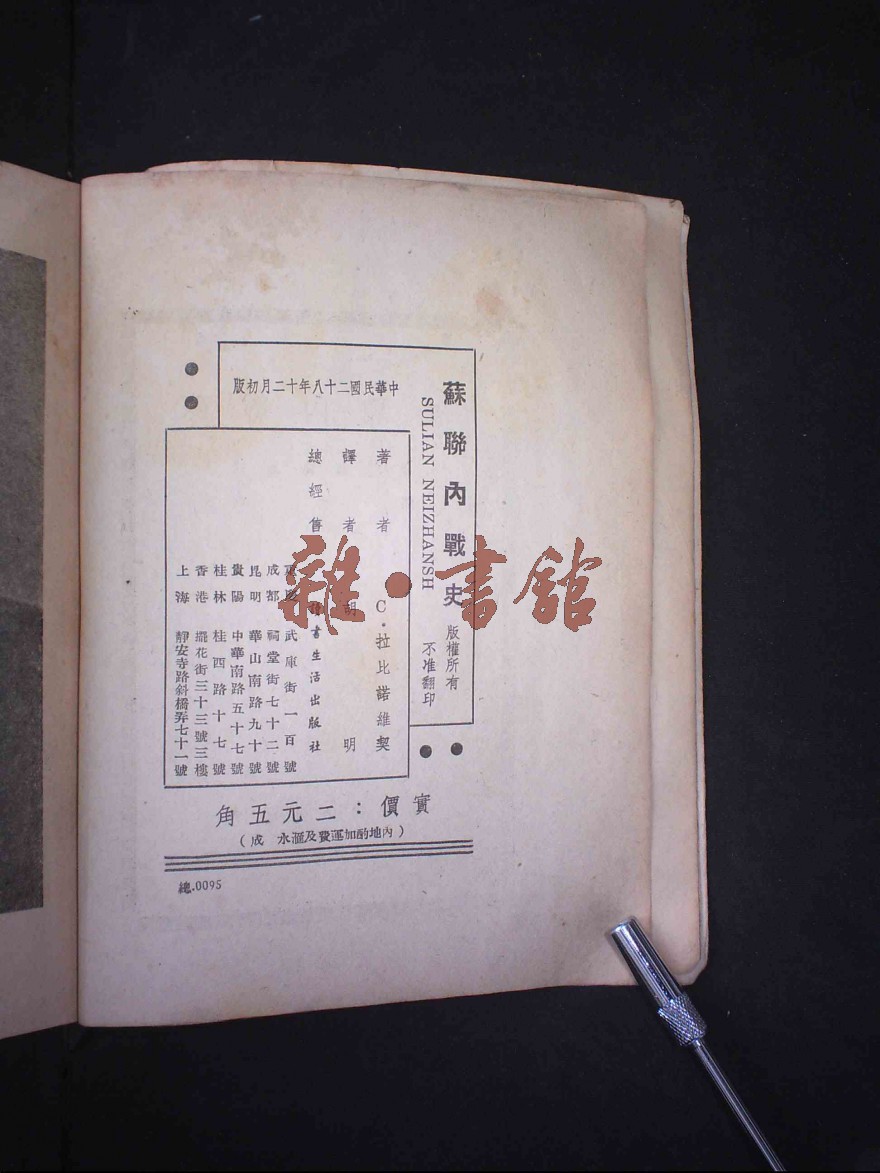 中華民國二十八年十二月初版
蘇聯內戰史
SULIAN NEIZHANSH
版權所有
不准翻印
著者 C.拉比諾維契
譯者 胡明
總經售 讀書生活出版社
重慶 武庫街一百號
成都 祠堂街七十二號
昆明 華山南路九十號
貴陽 中華南路五十七號
桂林 桂西路十七號
香港 擺花街三十三號三樓
上海 靜安寺路斜橋弄七十一號
實價:二元五角
(內地酌加運費及滙水 成)
總.0095
雜·書館